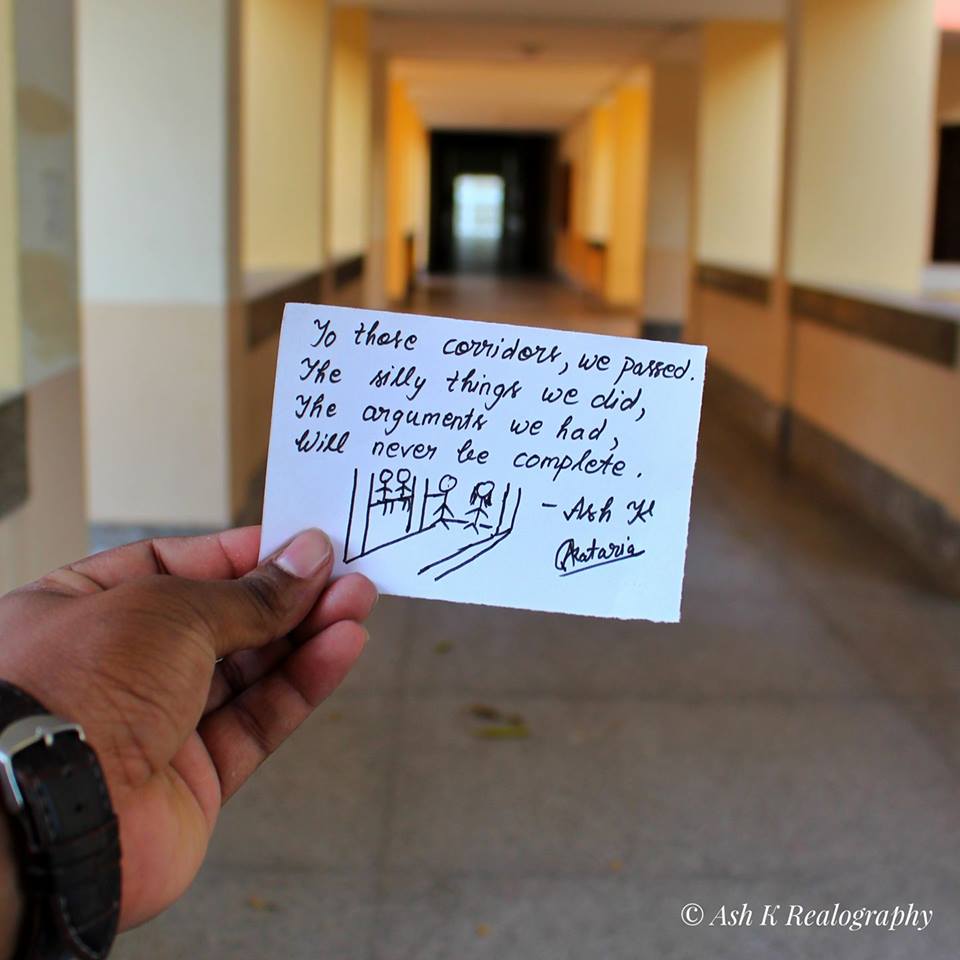 To those corridors, we passed.
The silly things we did,
The arguments we had,
Will never be complete.
- Ash K
Kataria
© Ash K Realography